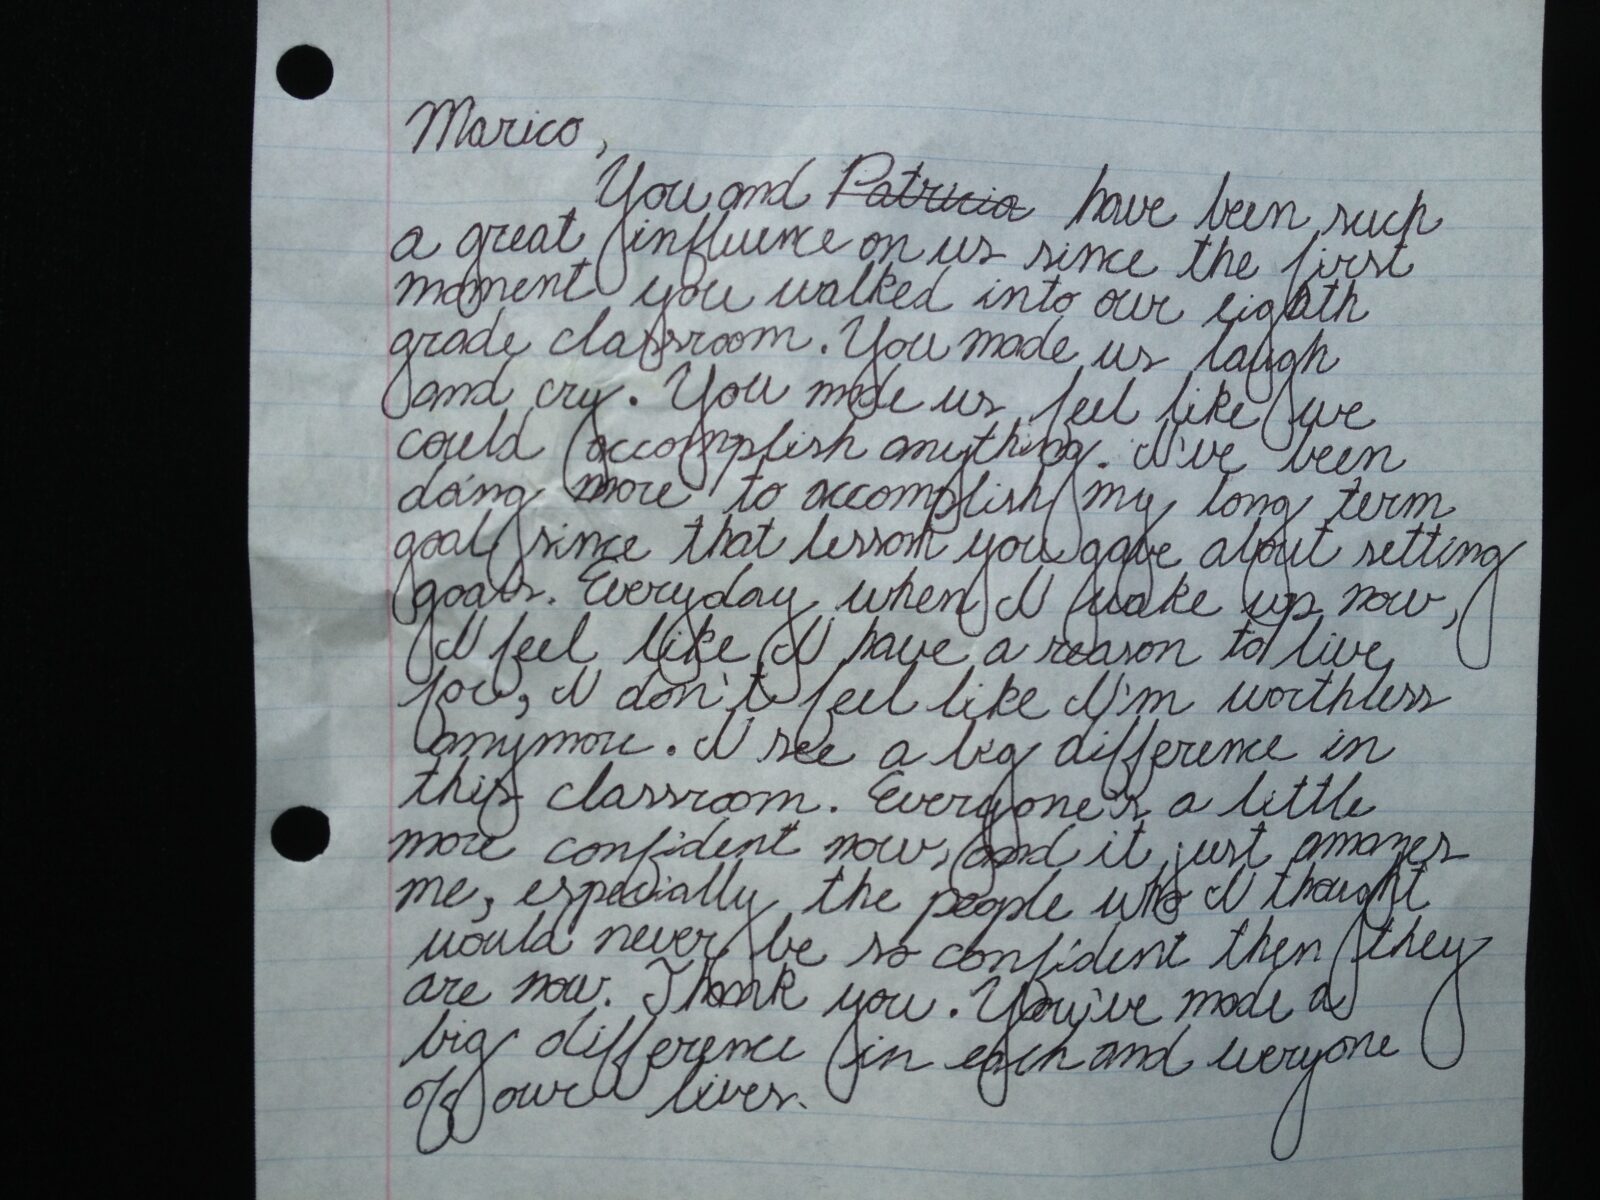 Marico,
You and Patricia have been such
a great influence on us since the first
moment you walked into our eighth
grade classroom. You made us laugh
and cry. You made us feel like we
could accomplish anything. I've been
doing more to accomplish my long term
goal since that lesson you gave about setting
goals. Everyday when I wake up now,
I feel like I have a reason to live
for, I don't feel like I'm worthless
anymore. I see a big difference in
this classroom. Everyone's a little
more confident now, and it just amazes
me, especially the people who I thought
would never be so confident then they
are now. Thank you. You've made a
big difference in each and everyone
of our lives.